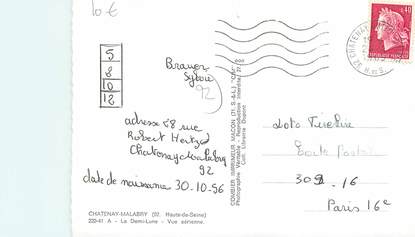 10 €
0,40
RÉPUBLIQUE FRANÇAISE
92 CHATENAY-
H.DE S.
5
8
10
12
Brauer
Sylvie
92
adresse 28 rue
Robert Hertzel
Chatenay Malabry
92
date de naissance 30.10.56
COMBIER IMPRIMEUR MACON (71. S.-&-L.) "CIM"
Photographie Véritable - Reproduction Interdite
Coll. Librairie Dupont
Loto Tirelire
Carte Postale
309.16
Paris 16e
CHATENAY-MALABRY (92. Haute-de-Seine)
220-41 A - La Demi-Lune - Vue aérienne.